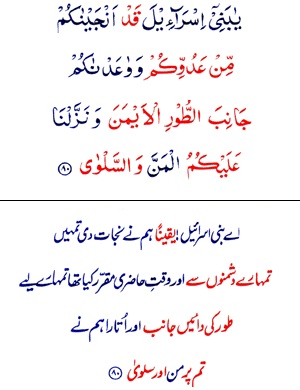 يٰبَنِيْۤ اِسْرَآءِيْلَ قَدْ اَنْجَيْنٰكُمْ
مِّنْ عَدُوِّكُمْ وَوٰعَدْنٰكُمْ
جَانِبَ الطُّوْرِ الْاَيْمَنَ وَ نَزَّلْنَا
عَلَيْكُمُ الْمَنَّ وَ السَّلْوٰى ۸۰
اے بنی اسرائیل! یقیناً ہم نے نجات دی تمہیں
تمہارے دشمنوں سے اور وقتِ حاضری مقرر کیا تھا تمہارے لیے
طور کی دائیں جانب اور اُتارا ہم نے
تم پر من اور سلویٰ ۸۰